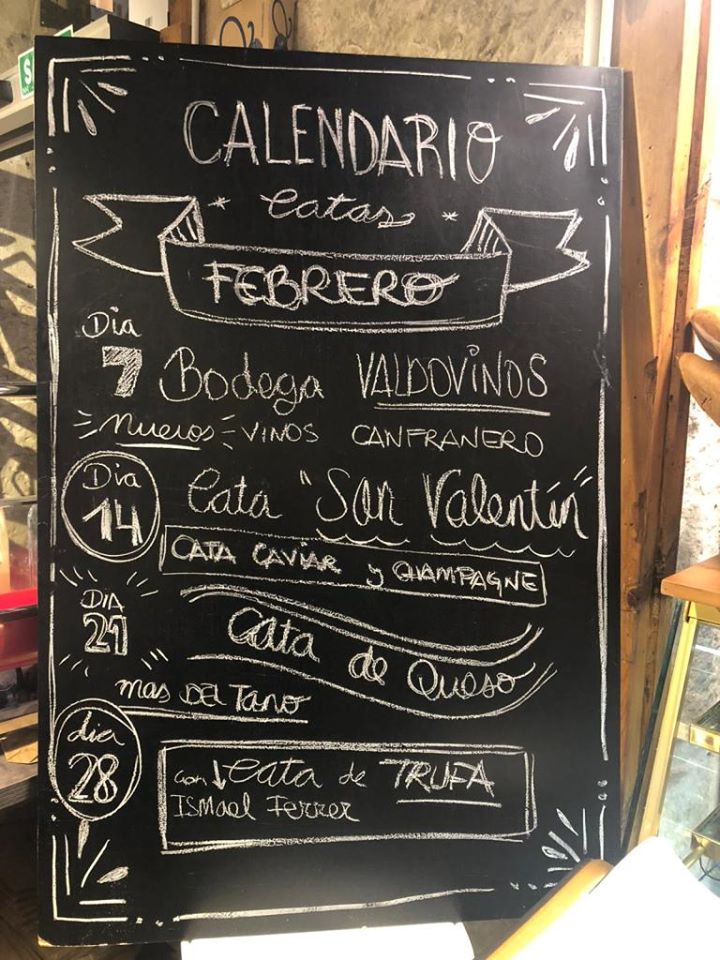 CALENDARIO
Catas
FEBRERO
Dia
7 Bodega VALDOVINOS
Nuevos VINOS CANFRANERO
Dia
14 Cata "San Valentín"
CATA CAVIAR y CHAMPAGNE
DIA
21 Cata de Queso
mas DEL Tano
dia
28 Cata de TRUFA
con ISmael Ferrer